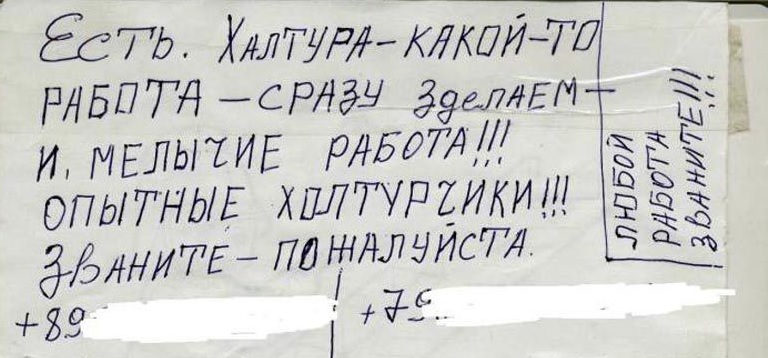 Есть. Халтура-какой-то
работа-сразу зделаем-
и, мелычие работа!!!
опытные холтурчики!!!
званите-пожалуйста.
+89
+79
любой
работа
званите!!!